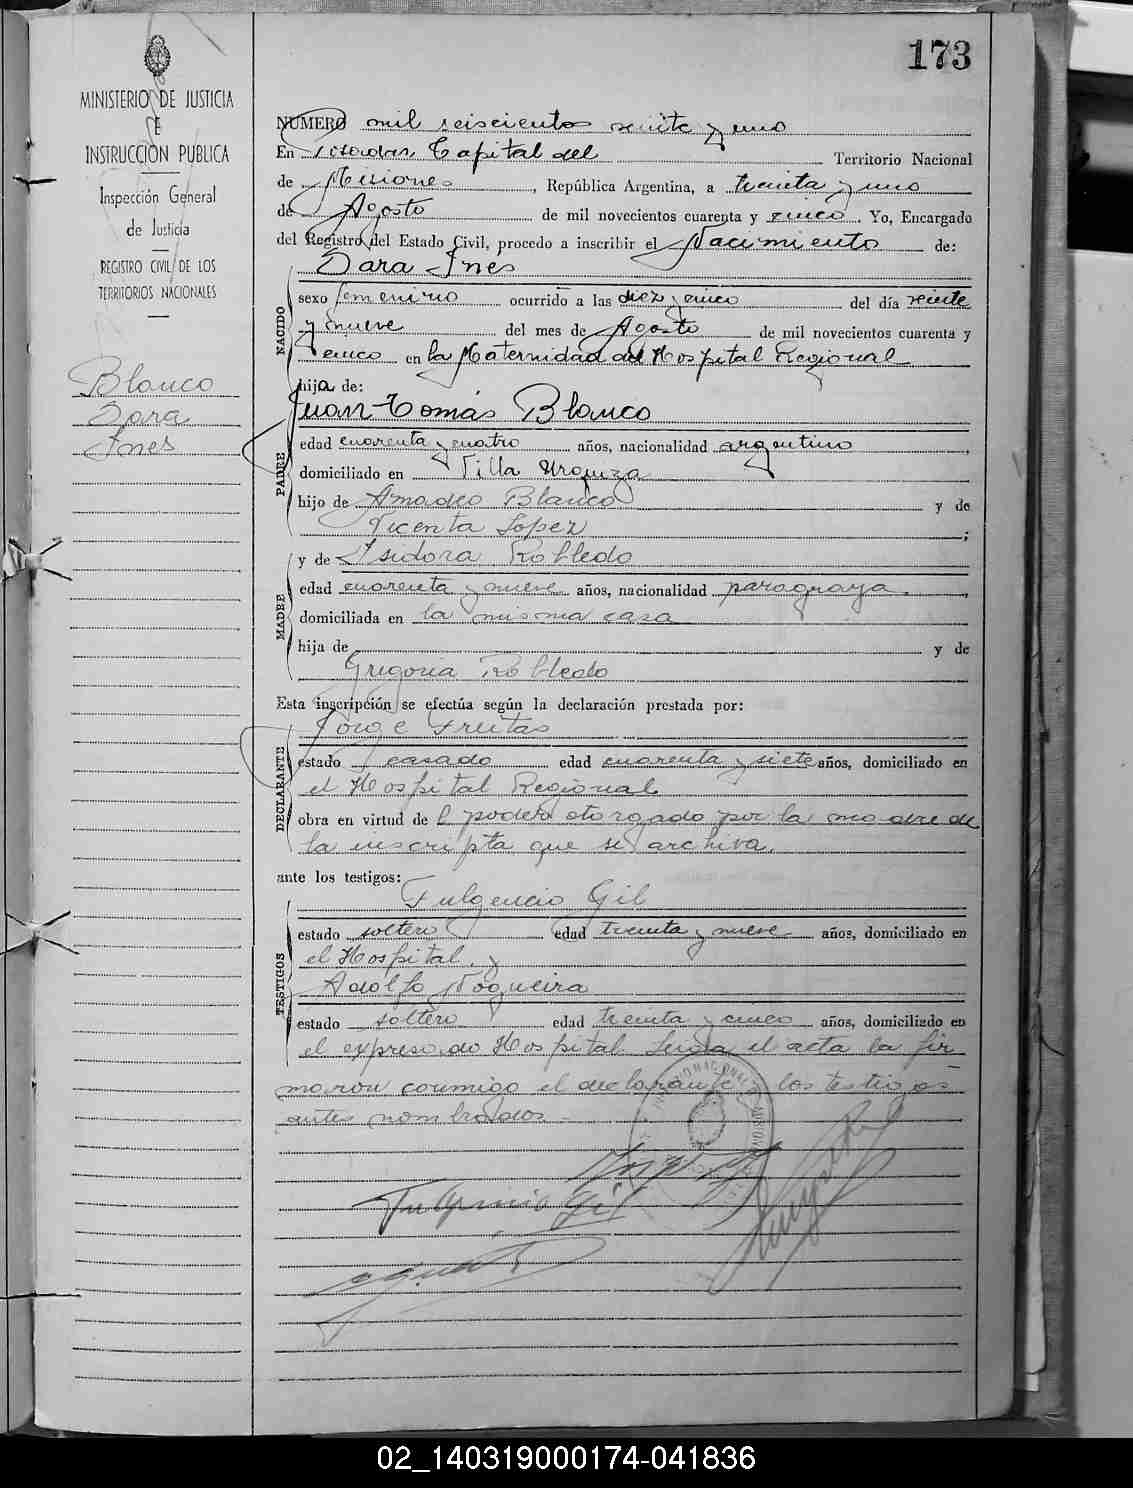 173
MINISTERIO DE JUSTICIA
E
INSTRUCCIÓN PUBLICA
Inspección General
de Justicia
REGISTRO CIVIL DE LOS
TERRITORIOS NACIONALES
Blanco
Dora
Ines
NUMERO mil seiscientos veinte y uno
En Posadas Capital del Territorio Nacional
de Misiones, República Argentina, a treinta y uno
de Agosto de mil novecientos cuarenta y cinco. Yo, Encargado
del Registro del Estado Civil, procedo a inscribir el Nacimiento de:
Dora Inés
NACIDO
sexo femenino ocurrido a las diez y cinco del día veinte
y nueve del mes de Agosto de mil novecientos cuarenta y
cinco en la Maternidad del Hospital Regional
hija de:
Juan Tomás Blanco
PADRE
edad cuarenta y cuatro años, nacionalidad argentino,
domiciliado en Villa Urquiza
hijo de Amadeo Blanco y de
Vicenta Lopez;
y de Isidora Robledo
MADRE
edad cuarenta y nueve años, nacionalidad paraguaya,
domiciliada en la misma casa
hija de y de
Grigoria Robledo
Esta inscripción se efectúa según la declaración prestada por:
Jorge Freitas
DECLARANTE
estado casado edad cuarenta y siete años, domiciliado en
el Hospital Regional
obra en virtud de l poder otorgado por la madre de
la inscripta que se archiva.
ante los testigos:
Fulgencio Gil
TESTIGOS
estado soltero edad treinta y nueve años, domiciliado en
el Hospital. y
Adolfo Nogueira
estado soltero edad treinta y cinco años, domiciliado en
el expresado Hospital. Leida el acta la fir
maron conmigo el declarante y los testigos
antes nombrados.
Fulgencio Gil
02_140319000174-041836